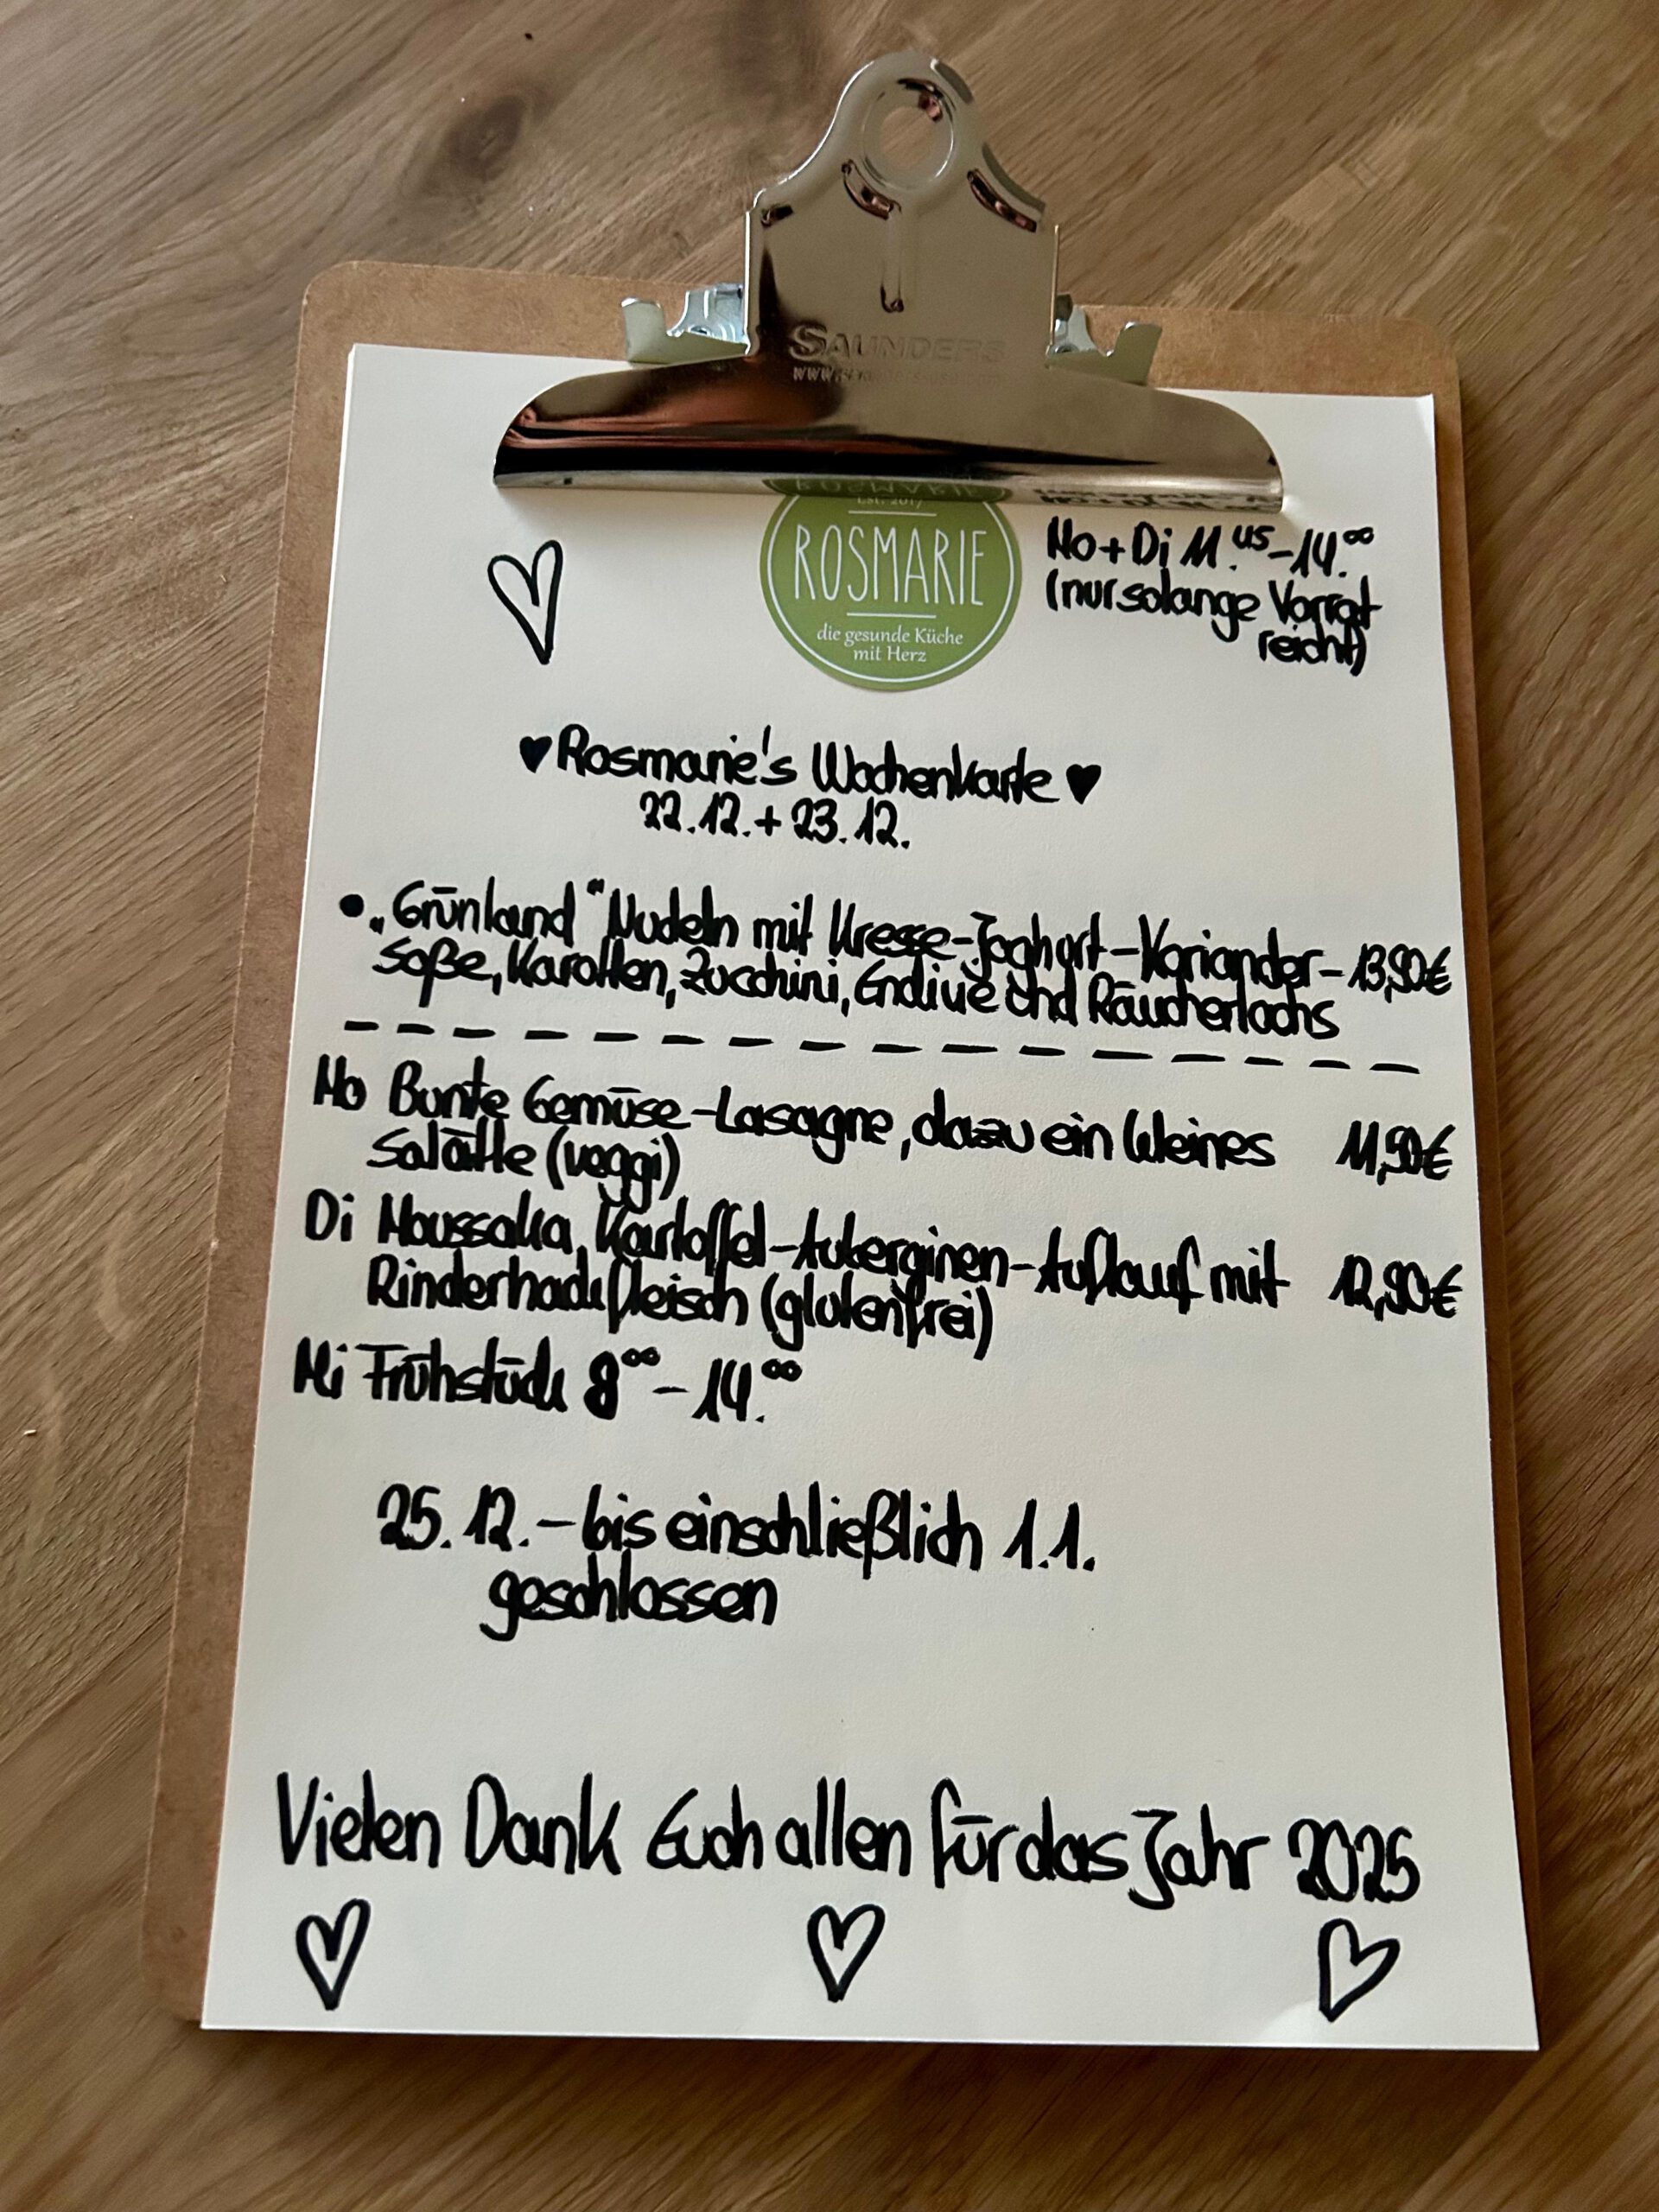 SAUNDERS
EST. 2017
ROSMARIE
die gesunde Küche
mit Herz
Mo+Di 11.45-14.00
(nur solange Vorrat
reicht)
♥ Rosmarie's Wochenkarte ♥
22.12. + 23.12.
• „Grünland" Nudeln mit Kresse-Joghurt-Koriander- 13,90€
Soße, Karotten, Zucchini, Endivie und Räucherlachs
Mo Bunte Gemüse-Lasagne, dazu ein kleines 11,90€
Salätle (veggi)
Di Moussaka, Kartoffel-Auberginen-Auflauf mit 12,90€
Rinderhackfleisch (glutenfrei)
Mi Frühstück 8.00-14.00
25.12. - bis einschließlich 1.1.
geschlossen
Vielen Dank Euch allen für das Jahr 2025